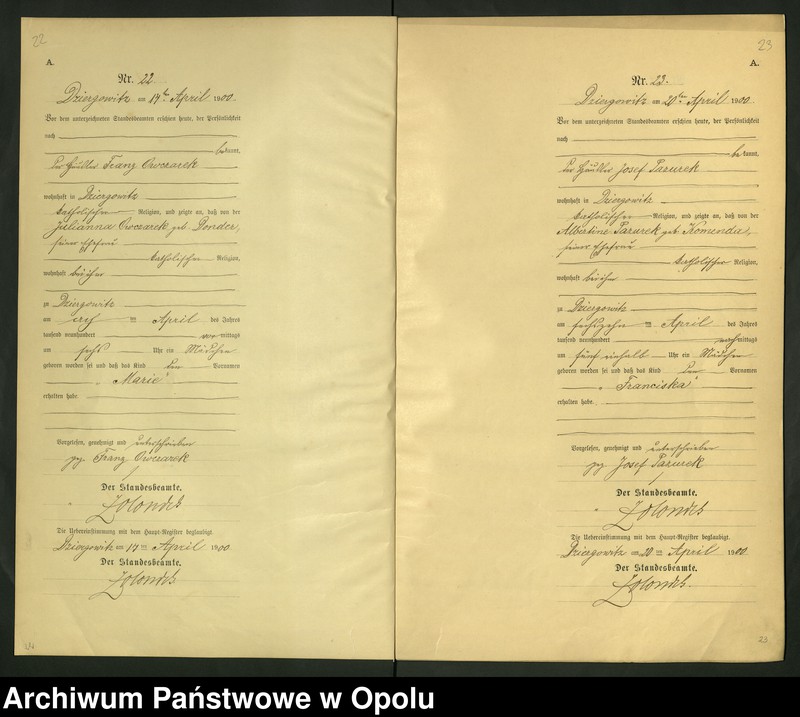 22
A.
Nr. 22
Dziergowitz am 17ten April 1900.
Vor dem unterzeichneten Standesbeamten erschien heute, der Persönlichkeit
nach
bekannt,
der Häusler Franz Owczarek
wohnhaft in Dziergowitz
katholischer Religion, und zeigte an, daß von der
Julianna Owczarek geb. Donder,
seiner Ehefrau
katholischer Religion,
wohnhaft bei ihm
zu Dziergowitz
am ten April des Jahres
tausend neunhundert vor mittags
um sechs Uhr ein Mädchen
geboren worden sei und daß das Kind den Vornamen
„Marie“
erhalten habe.
Vorgelesen, genehmigt und unterschrieben
gez. Franz Owczarek
Der Standesbeamte.
Die Uebereinstimmung mit dem Haupt-Register beglaubigt.
Dziergowitz am 17ten April 1900.
Der Standesbeamte.
23
A.
Nr. 23.
Dziergowitz am 20ten April 1900
Vor dem unterzeichneten Standesbeamten erschien heute, der Persönlichkeit
nach
bekannt,
der Häusler Josef Pazurek
wohnhaft in Dziergowitz
katholischer Religion, und zeigte an, daß von der
Albertine Pazurek geb. Komenda,
seiner Ehefrau
katholischer Religion,
wohnhaft bei ihm
zu Dziergowitz
am sechszehn ten April des Jahres
tausend neunhundert nachmittags
um fünf einhalb Uhr ein Mädchen
geboren worden sei und daß das Kind den Vornamen
„Franciska“
erhalten habe.
Vorgelesen, genehmigt und unterschrieben
gez. Josef Pazurek
Der Standesbeamte.
Die Uebereinstimmung mit dem Haupt-Register beglaubigt.
Dziergowitz am 20ten April 1900.
Der Standesbeamte.
23
Archiwum Państwowe w Opolu